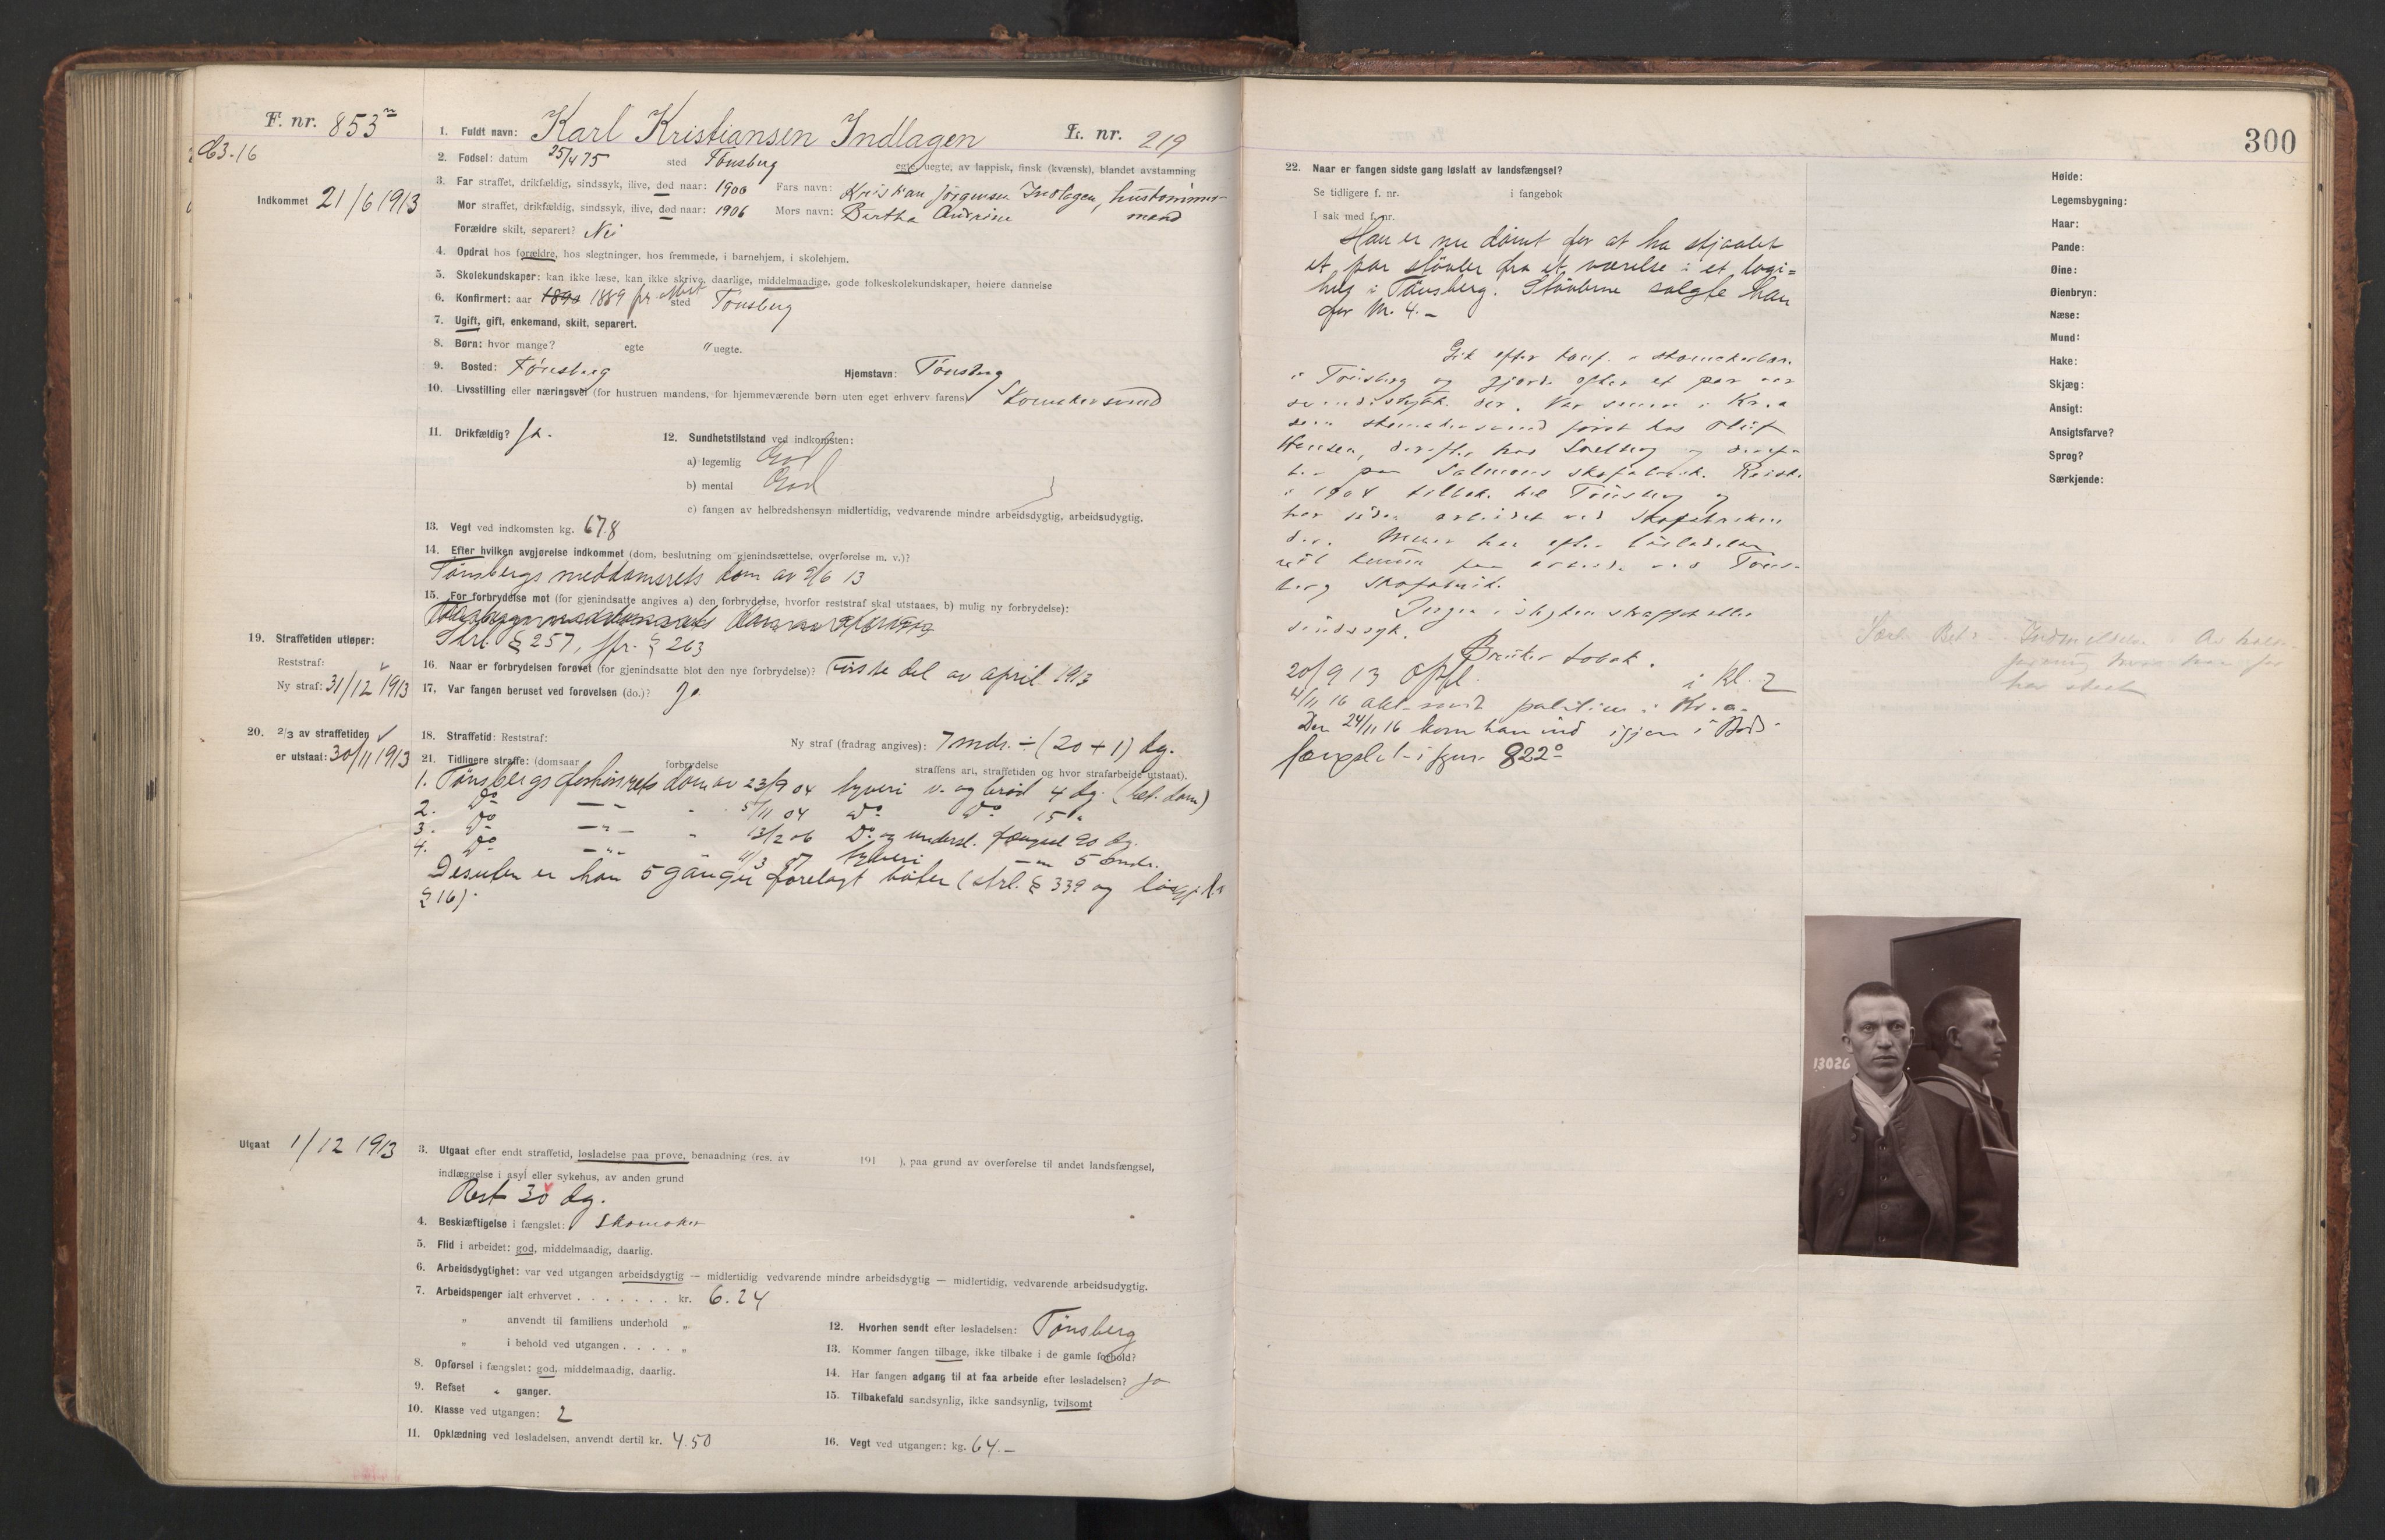 F. nr. 853
Indkommet 21/6 1913
1. Fuldt navn: Karl Kristiansen Indlagen L. nr. 219
2. Fødsel: datum 25/4 75 sted Tønsberg egte, uegte, av lappisk, finsk (kvænsk), blandet avstamning
3. Far straffet, drikfældig, sindssyk, ilive, død naar: 1900 Fars navn: Kristian Jörgensen Indlagen, hustømmer-
mand
Mor straffet, drikfældig, sindssyk, ilive, død naar: 1906 Mors navn: Bertha Andrine
Forældre skilt, separert? Nei
4. Opdrat hos forældre, hos slegtninger, hos fremmede, i barnehjem, i skolehjem.
5. Skolekundskaper: kan ikke læse, kan ikke skrive, daarlige, middelmaadige, gode folkeskolekundskaper, høiere dannelse
6. Konfirmert: aar 1890 1889 sted Tønsberg
7. Ugift, gift, enkemand, skilt, separert.
8. Børn: hvor mange? egte " uegte.
9. Bosted: Tønsberg Hjemstavn: Tønsberg
10. Livsstilling eller næringsvei (for hustruen mandens, for hjemmeværende børn uten eget erhverv farens) Skomakersvend
11. Drikfældig? Ja.
12. Sundhetstilstand ved indkomsten:
a) legemlig God
b) mental God
c) fangen av helbredshensyn midlertidig, vedvarende mindre arbeidsdygtig, arbeidsudygtig.
13. Vegt ved indkomsten kg. 67.8
14. Efter hvilken avgjørelse indkommet (dom, beslutning om gjenindsættelse, overførelse m. v.)?
Tönsbergs meddomsrets dom av 9/6 13
15. For forbrydelse mot (for gjenindsatte angives a) den forbrydelse, hvorfor reststraf skal utstaaes, b) mulig ny forbrydelse):
Strl. § 257, jfr. § 263
16. Naar er forbrydelsen forøvet (for gjenindsatte blot den nye forbrydelse)? Første del av april 1913
17. Var fangen beruset ved forøvelsen (do.)? Ja
18. Straffetid: Reststraf: Ny straf (fradrag angives): 7 mdr. ÷ (20 + 1) dg.
19. Straffetiden utløper:
Reststraf:
Ny straf: 31/12 1913
20. 2/3 av straffetiden
er utstaat: 30/11 1913
21. Tidligere straffe: (domsaar forbrydelse straffens art, straffetiden og hvor strafarbeide utstaat).
1. Tönsbergs forhörsrets dom av 23/9 04 tyveri v. og bröd 4 dg. (bet. dom)
2. Do — " — 5/11 04 Do Do 15 "
3. Do — " — " 13/2 06 Do og undersl. fængsel 90 dg.
4. Do — " — 11/3 07 tyveri — " — 5 mdr.
Desuten er han 5 ganger forelagt böter (strl. § 339 og
§ 16).
Utgaat 1/12 1913
3. Utgaat efter endt straffetid, løsladelse paa prøve, benaadning (res. av 191 ), paa grund av overførelse til andet landsfængsel,
indlæggelse i asyl eller sykehus, av anden grund
Rest 30 dg.
4. Beskjæftigelse i fængslet: Skomaker
5. Flid i arbeidet: god, middelmaadig, daarlig.
6. Arbeidsdygtighet: var ved utgangen arbeidsdygtig — midlertidig vedvarende mindre arbeidsdygtig — midlertidig, vedvarende arbeidsudygtig.
7. Arbeidspenger ialt erhvervet . . . . . . . kr. 6.24
" anvendt til familiens underhold "
" i behold ved utgangen . . . . "
8. Opførsel i fængslet: god, middelmaadig, daarlig.
9. Refset " ganger.
10. Klasse ved utgangen: 2
11. Opklædning ved løsladelsen, anvendt dertil kr. 4.50
12. Hvorhen sendt efter løsladelsen: Tönsberg
13. Kommer fangen tilbage, ikke tilbake i de gamle forhold?
14. Har fangen adgang til at faa arbeide efter løsladelsen? Ja
15. Tilbakefald sandsynlig, ikke sandsynlig, tvilsomt
16. Vegt ved utgangen: kg. 64.—
300
22. Naar er fangen sidste gang løslatt av landsfængsel?
Se tidligere f. nr. i fangebok
I sak med f. nr.
Han er nu dömt for at ha stjaalet
et par stövler fra et værelse i et logi=
hus i Tönsberg. Stövlerne solgte han
for kr. 4.—
Gik efter konf. i skomakerlære
i Tönsberg og gjorde efter et par aar
svendestykke der. Var senere i Kr.a
som skomakersvend först hos Oluf
Hansen, derefter hos Solberg og derefter
paa Salmons skofabrik. Reiste
i 1904 tilbake til Tönsberg og
har siden arbeidet ved skofabriken
der. Mener han efter löslatelsen
vil komme paa arbeide ved Töns-
berg Skofabrik.
Ingen i slegten straffet eller
sindssyk.
Bruker tobak.
20/9 13 Opfl. i Kl. 2
4/11 16 politiet i Kr.a.
Den 24/11 16 kom han ind igjen i Bods-
fængslet — i fgnr. 822
Høide:
Legemsbygning:
Haar:
Pande:
Øine:
Øienbryn:
Næse:
Mund:
Hake:
Skjæg:
Ansigt:
Ansigtsfarve?
Sprog?
Særkjende:
13026